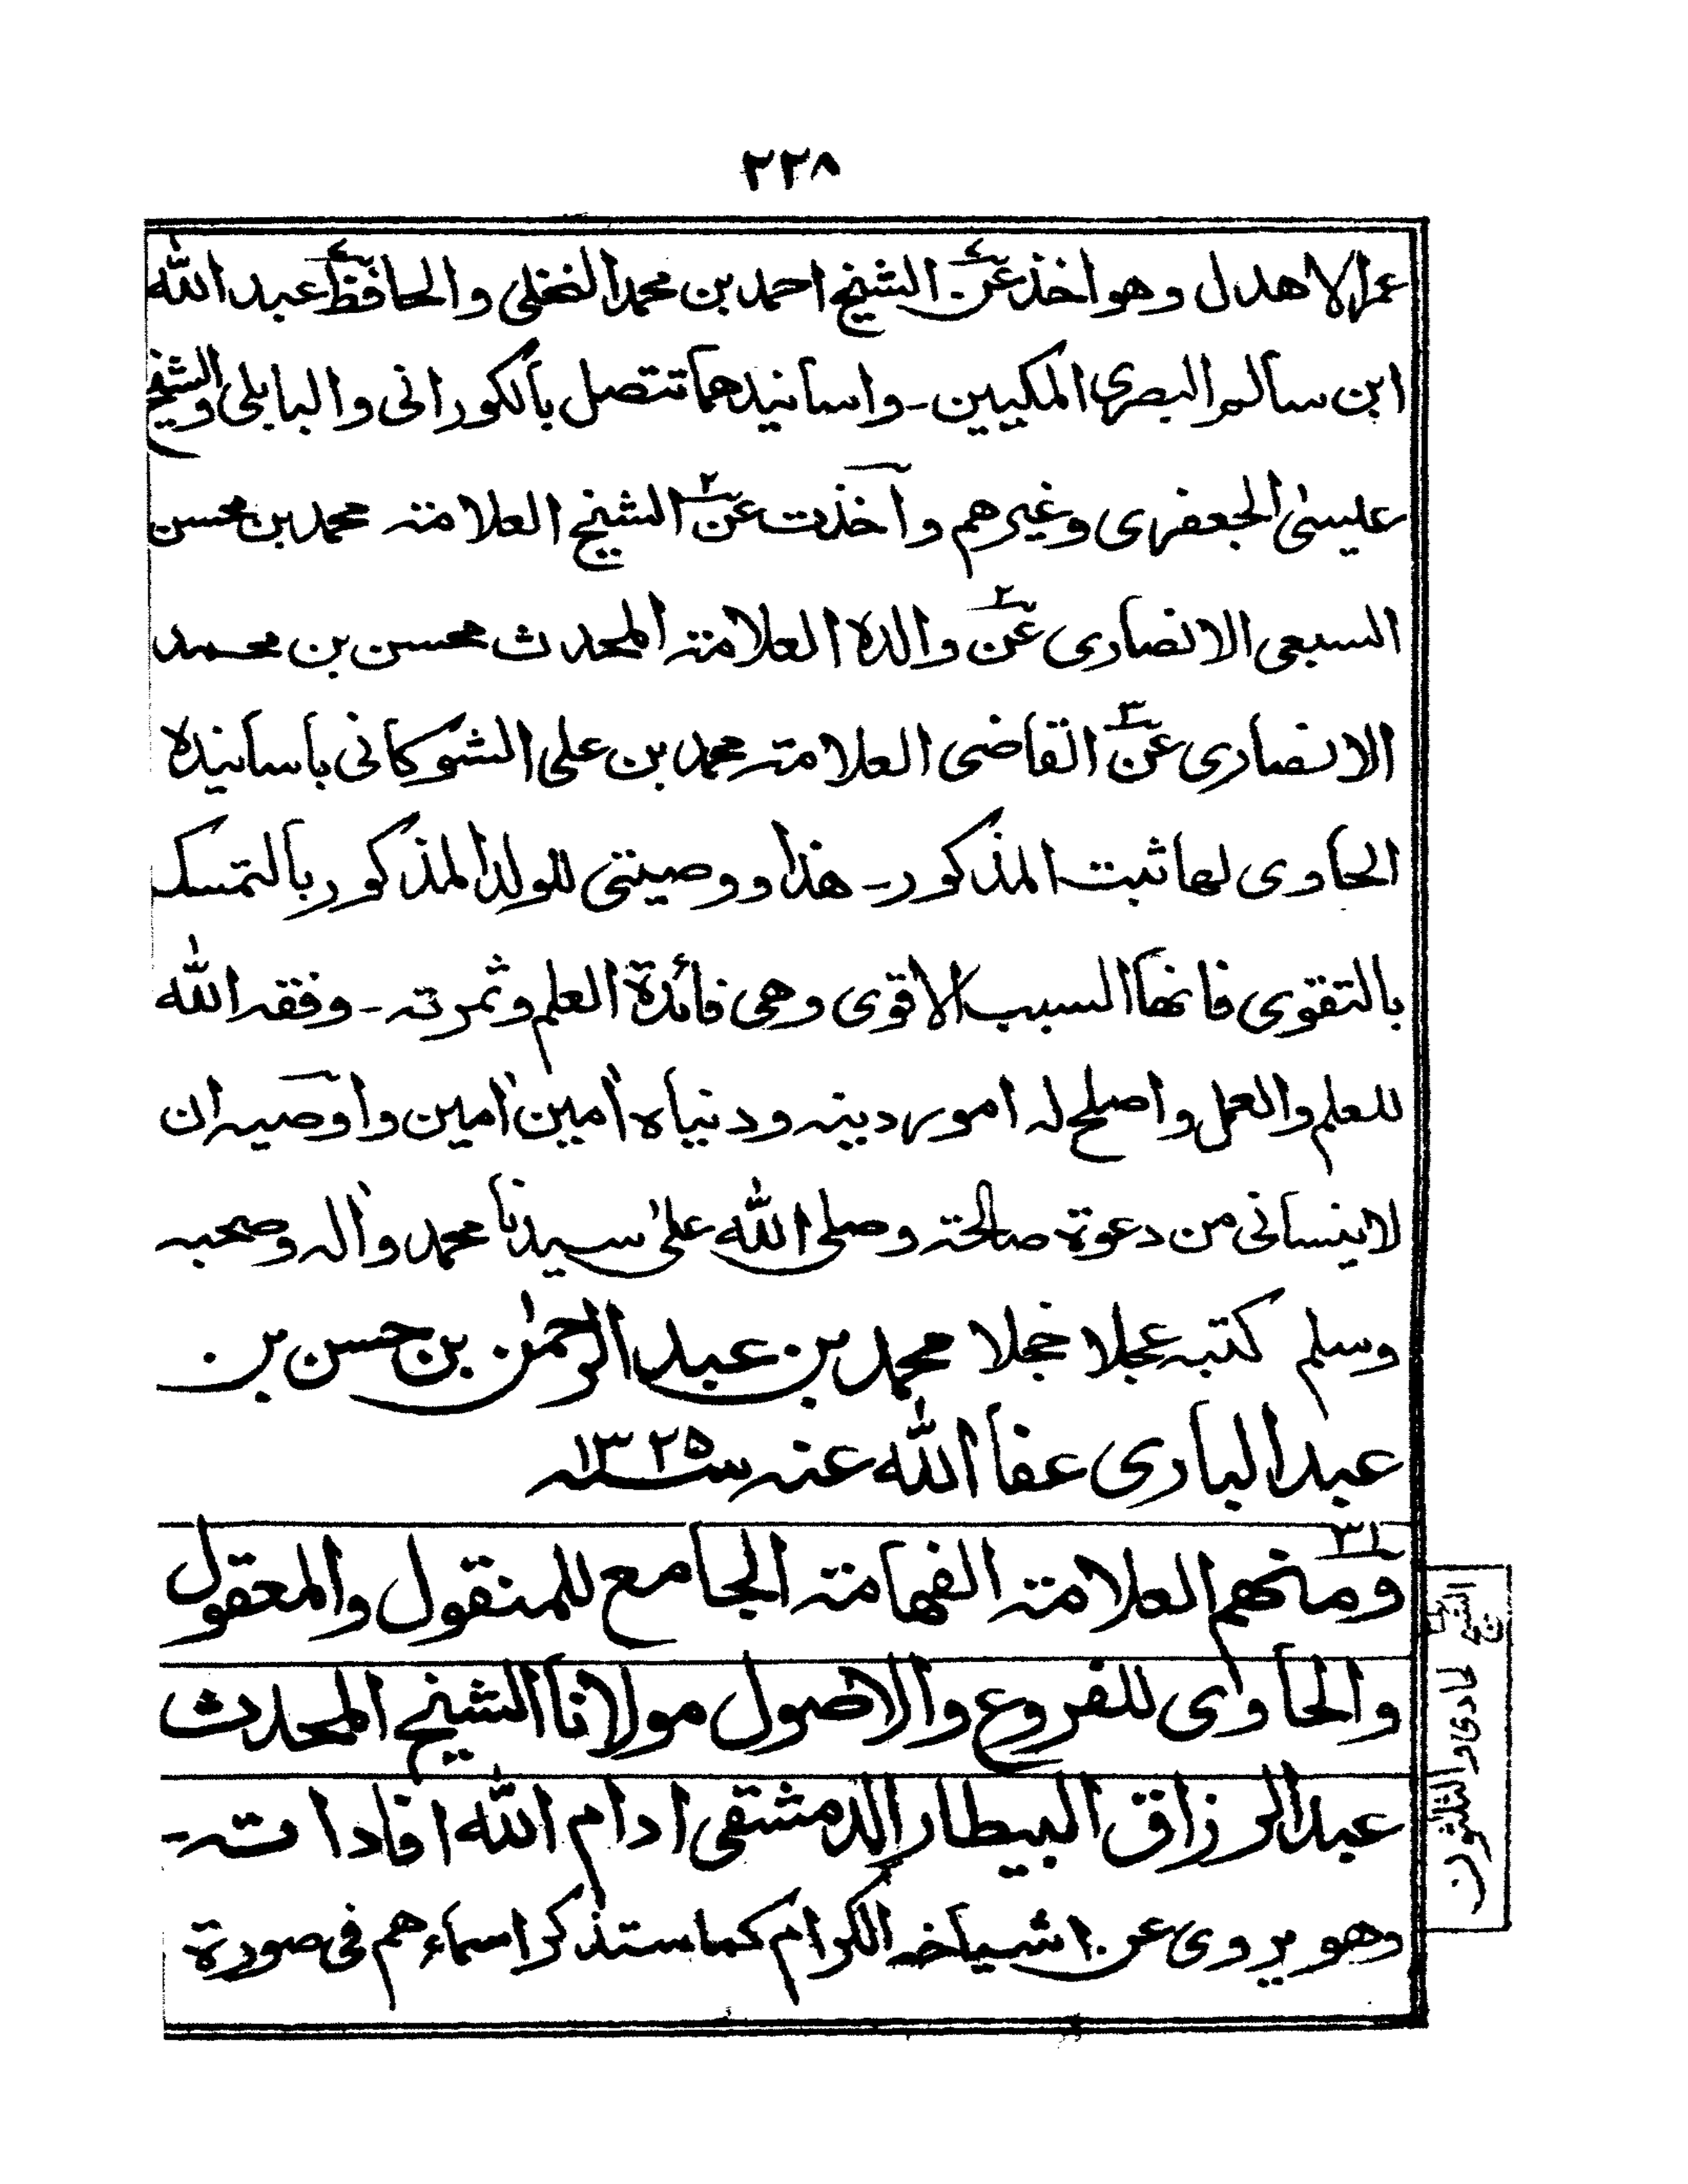 ٢٢٨
عمر الاهدل وهو اخذ عن الشيخ احمد بن محمد النخلى والحافظ عبد الله
ابن سالم البصرى المكيين ـ واسانيدهما تتصل بالكورانى والبابلى والشيخ
عليسى الجعفرى وغيرهم وآخذت عن الشيخ العلامته محمد بن محسن
السبعى الانصارى عن والده العلامته المحدث محسن بن محمد
الانصارى عن القاضى العلامته محمد بن على الشوكانى باسانيده
الحاوى لها ثبت المذكور ـ هذا ووصيتى للولد المذكور بالتمسك
بالتقوى فانها السبب الاقوى وهى فائدة العلم وثمرته ـ وفقه الله
للعلم والعمل واصلح له امور دينه ودنياه اٰمين اٰمين واوصيه ان
لا ينسانى من دعوة صالحته وصلى الله علىٰ سيدنا محمد واٰله وصحبه
وسلم كتبه عجلا خجلا محمد بن عبد الرحمٰن بن حسن بن
عبد البارى عفا الله عنه سنه ١٣٢٥
٣١
ومنهم العلامته الفهامته الجامع للمنقول والمعقول
والحاوى للفروع والاصول مولانا الشيخ المحدث
عبد الرزاق البيطار الدمشقى ادام الله افاداته ـ
وهو يروى عن اشياخه الكرام كما ستذكر اسماءهم فى صورة
الشيخ الحادى والثلثون